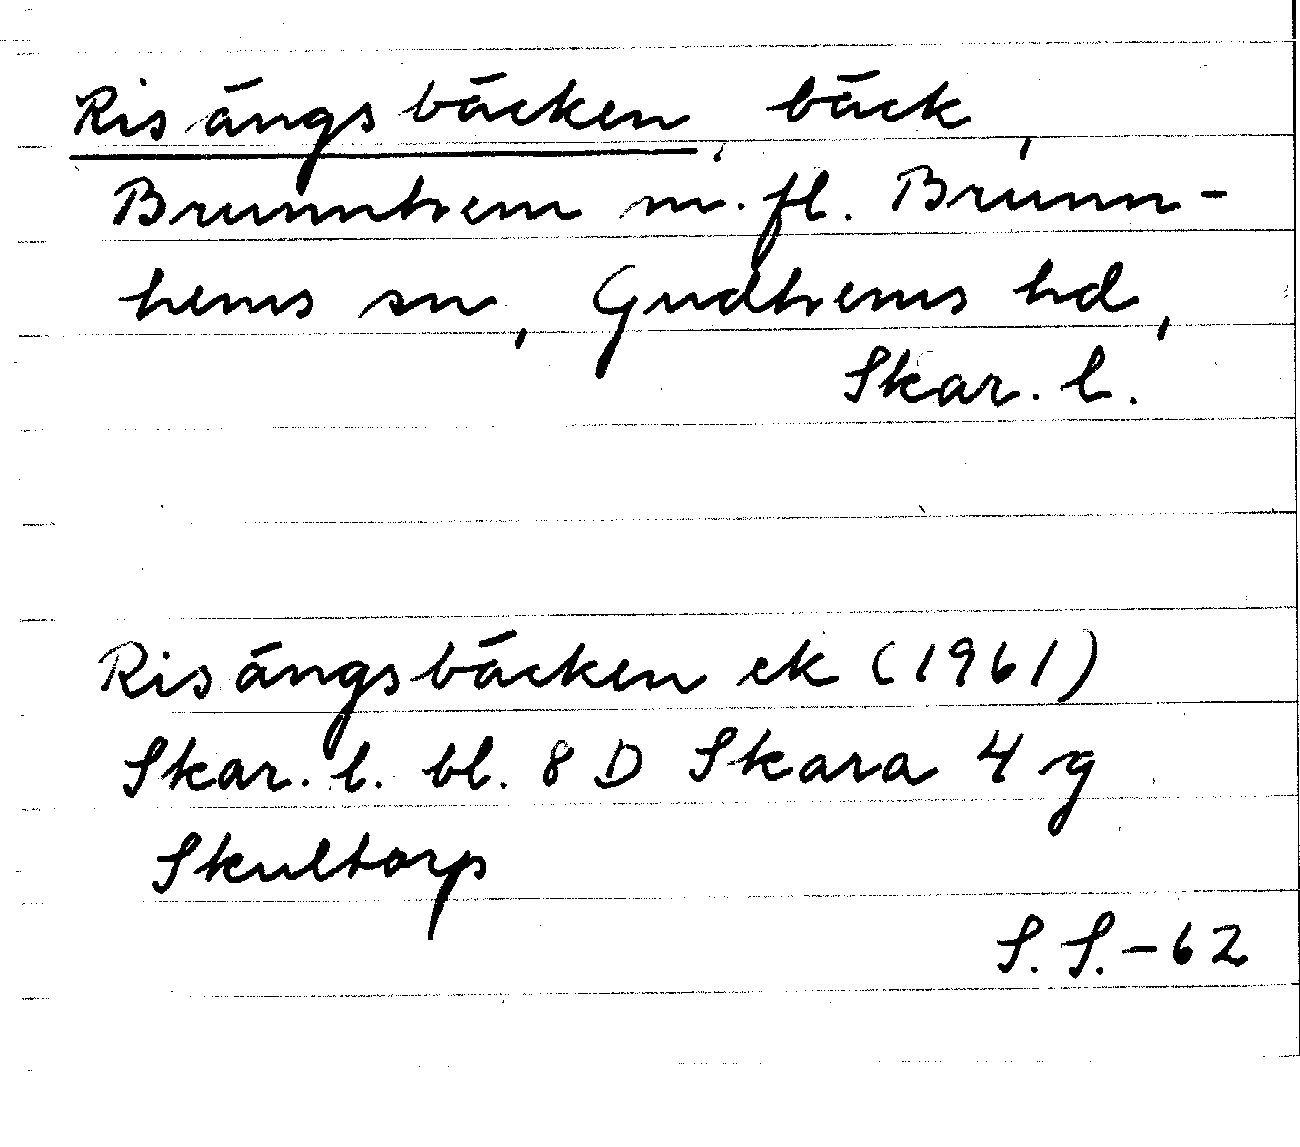 Risängsbäcken, bäck,
Brunnhem m. fl. Brunn-
hems sn, Gudhems hd,
Skar. l.
Risängsbäcken ek (1961)
Skar. l. bl. 8 D Skara 4 g
Skultorp
S. S. - 62